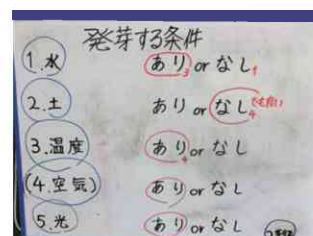 発芽する条件
1.水 あり3 or なし1
2.土 あり or なし4 でも良い
3.温度 あり4 or なし
(4.空気) あり or なし
5.光 あり or なし